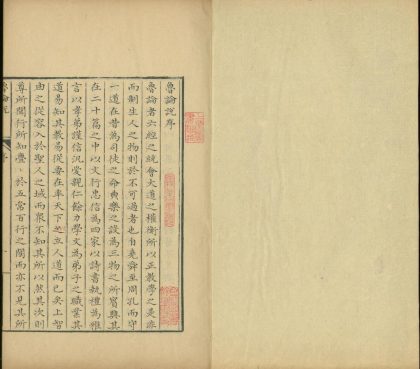 魯論說序
魯論者六經之統會大道之權衡所以正教學之是非
而制生人之物則於不可過者也自堯舜至周孔而守
一道在昔為司徒之命典樂之設為三物之所賓興其
在二十篇之中以文行忠信為四家以詩書執禮為雅
言以孝弟謹信汎愛親仁餘力學文為弟子之職業其
道易知其教易從要在率天下之立人道而已矣上智
由之從容入於聖人之域而眾不知其所以然其次則
尊所聞行所知疊於五常百行之間而亦不見其所
魯論說
序